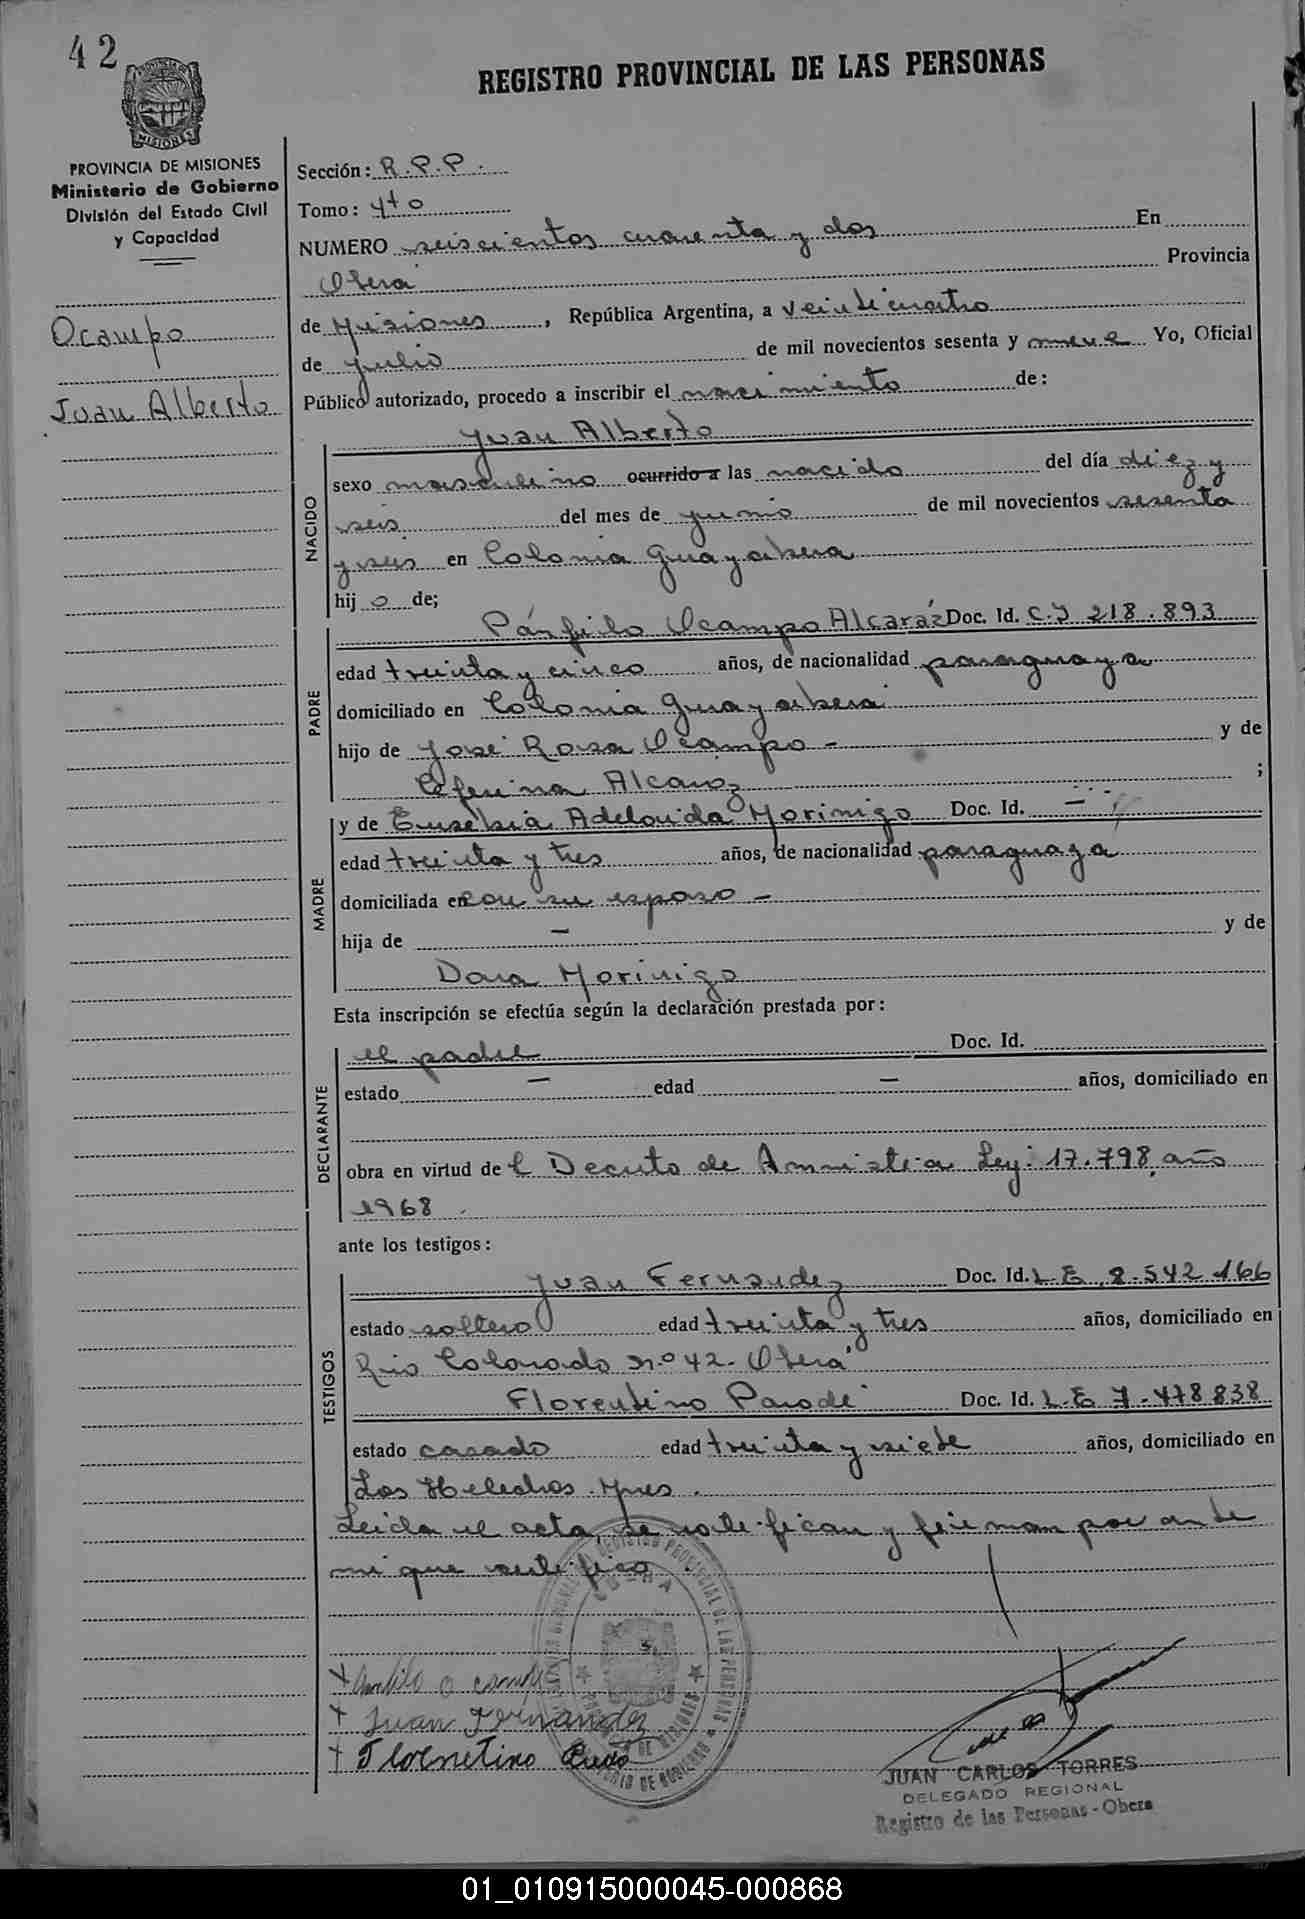 42
REGISTRO PROVINCIAL DE LAS PERSONAS
MISIONES
PROVINCIA DE MISIONES
Ministerio de Gobierno
División del Estado Civil
y Capacidad
Ocampo
Juan Alberto
Sección: R.P.P.
Tomo: 4to
NUMERO seiscientos cuarenta y dos En
Oberá Provincia
de Misiones, República Argentina, a veinticuatro
de julio de mil novecientos sesenta y nueve Yo, Oficial
Público autorizado, procedo a inscribir el nacimiento de:
Juan Alberto
NACIDO
sexo masculino ocurrido a las nacido del día diez y
seis del mes de junio de mil novecientos sesenta
y seis en Colonia Guayabera
hij o de;
PADRE
Pánfilo Ocampo Alcaráz Doc. Id. C.I 218.893
edad treinta y cinco años, de nacionalidad paraguaya
domiciliado en Colonia Guayabera
hijo de José Rosa Ocampo - y de
Ceferina Alcaraz ;
MADRE
y de Eusebia Adelaida Morinigo Doc. Id. -
edad treinta y tres años, de nacionalidad paraguaya
domiciliada en con su esposo -
hija de - y de
Dora Morinigo
Esta inscripción se efectúa según la declaración prestada por:
DECLARANTE
el padre Doc. Id.
estado - edad - años, domiciliado en
obra en virtud de l Decreto de Amnistia Ley: 17.798, año
1968.
ante los testigos:
TESTIGOS
Juan Fernandez Doc. Id. L.E 8.542.166
estado soltero edad treinta y tres años, domiciliado en
Rio Colorado nº 42 - Oberá
Florentino Parodi Doc. Id. L.E 7.478.838
estado casado edad treinta y siete años, domiciliado en
Los Helechos. Mnes.
Leida el acta, se ratifican y firman por ante
mi que certifico
+ ocampo
+ Juan Fernández
+ Florentino
JUAN CARLOS TORRES
DELEGADO REGIONAL
Registro de las Personas - Obera
01_010915000045-000868